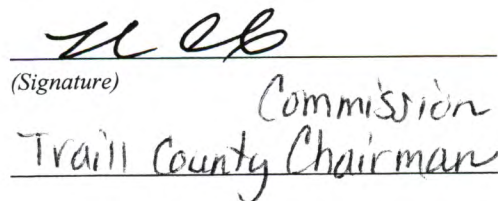 (Signature)
Commission
Traill County Chairman